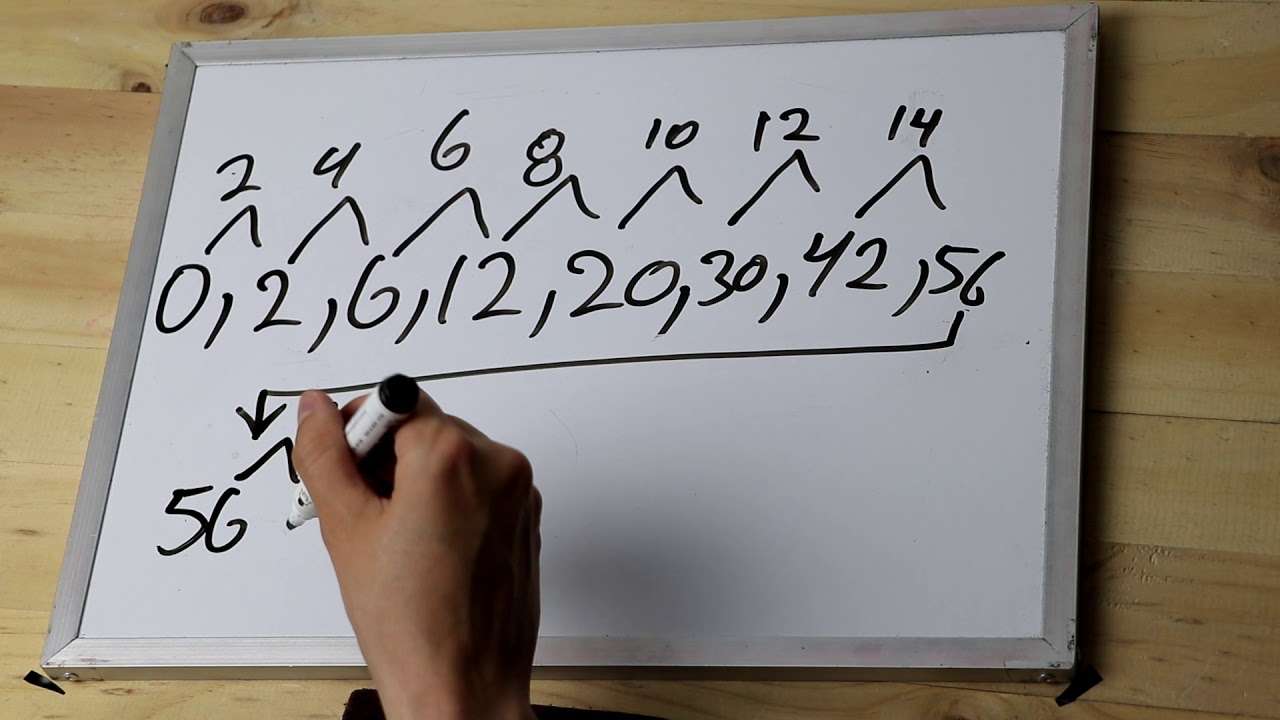 2 4 6 8 10 12 14
0, 2, 6, 12, 20, 30, 42, 56
56